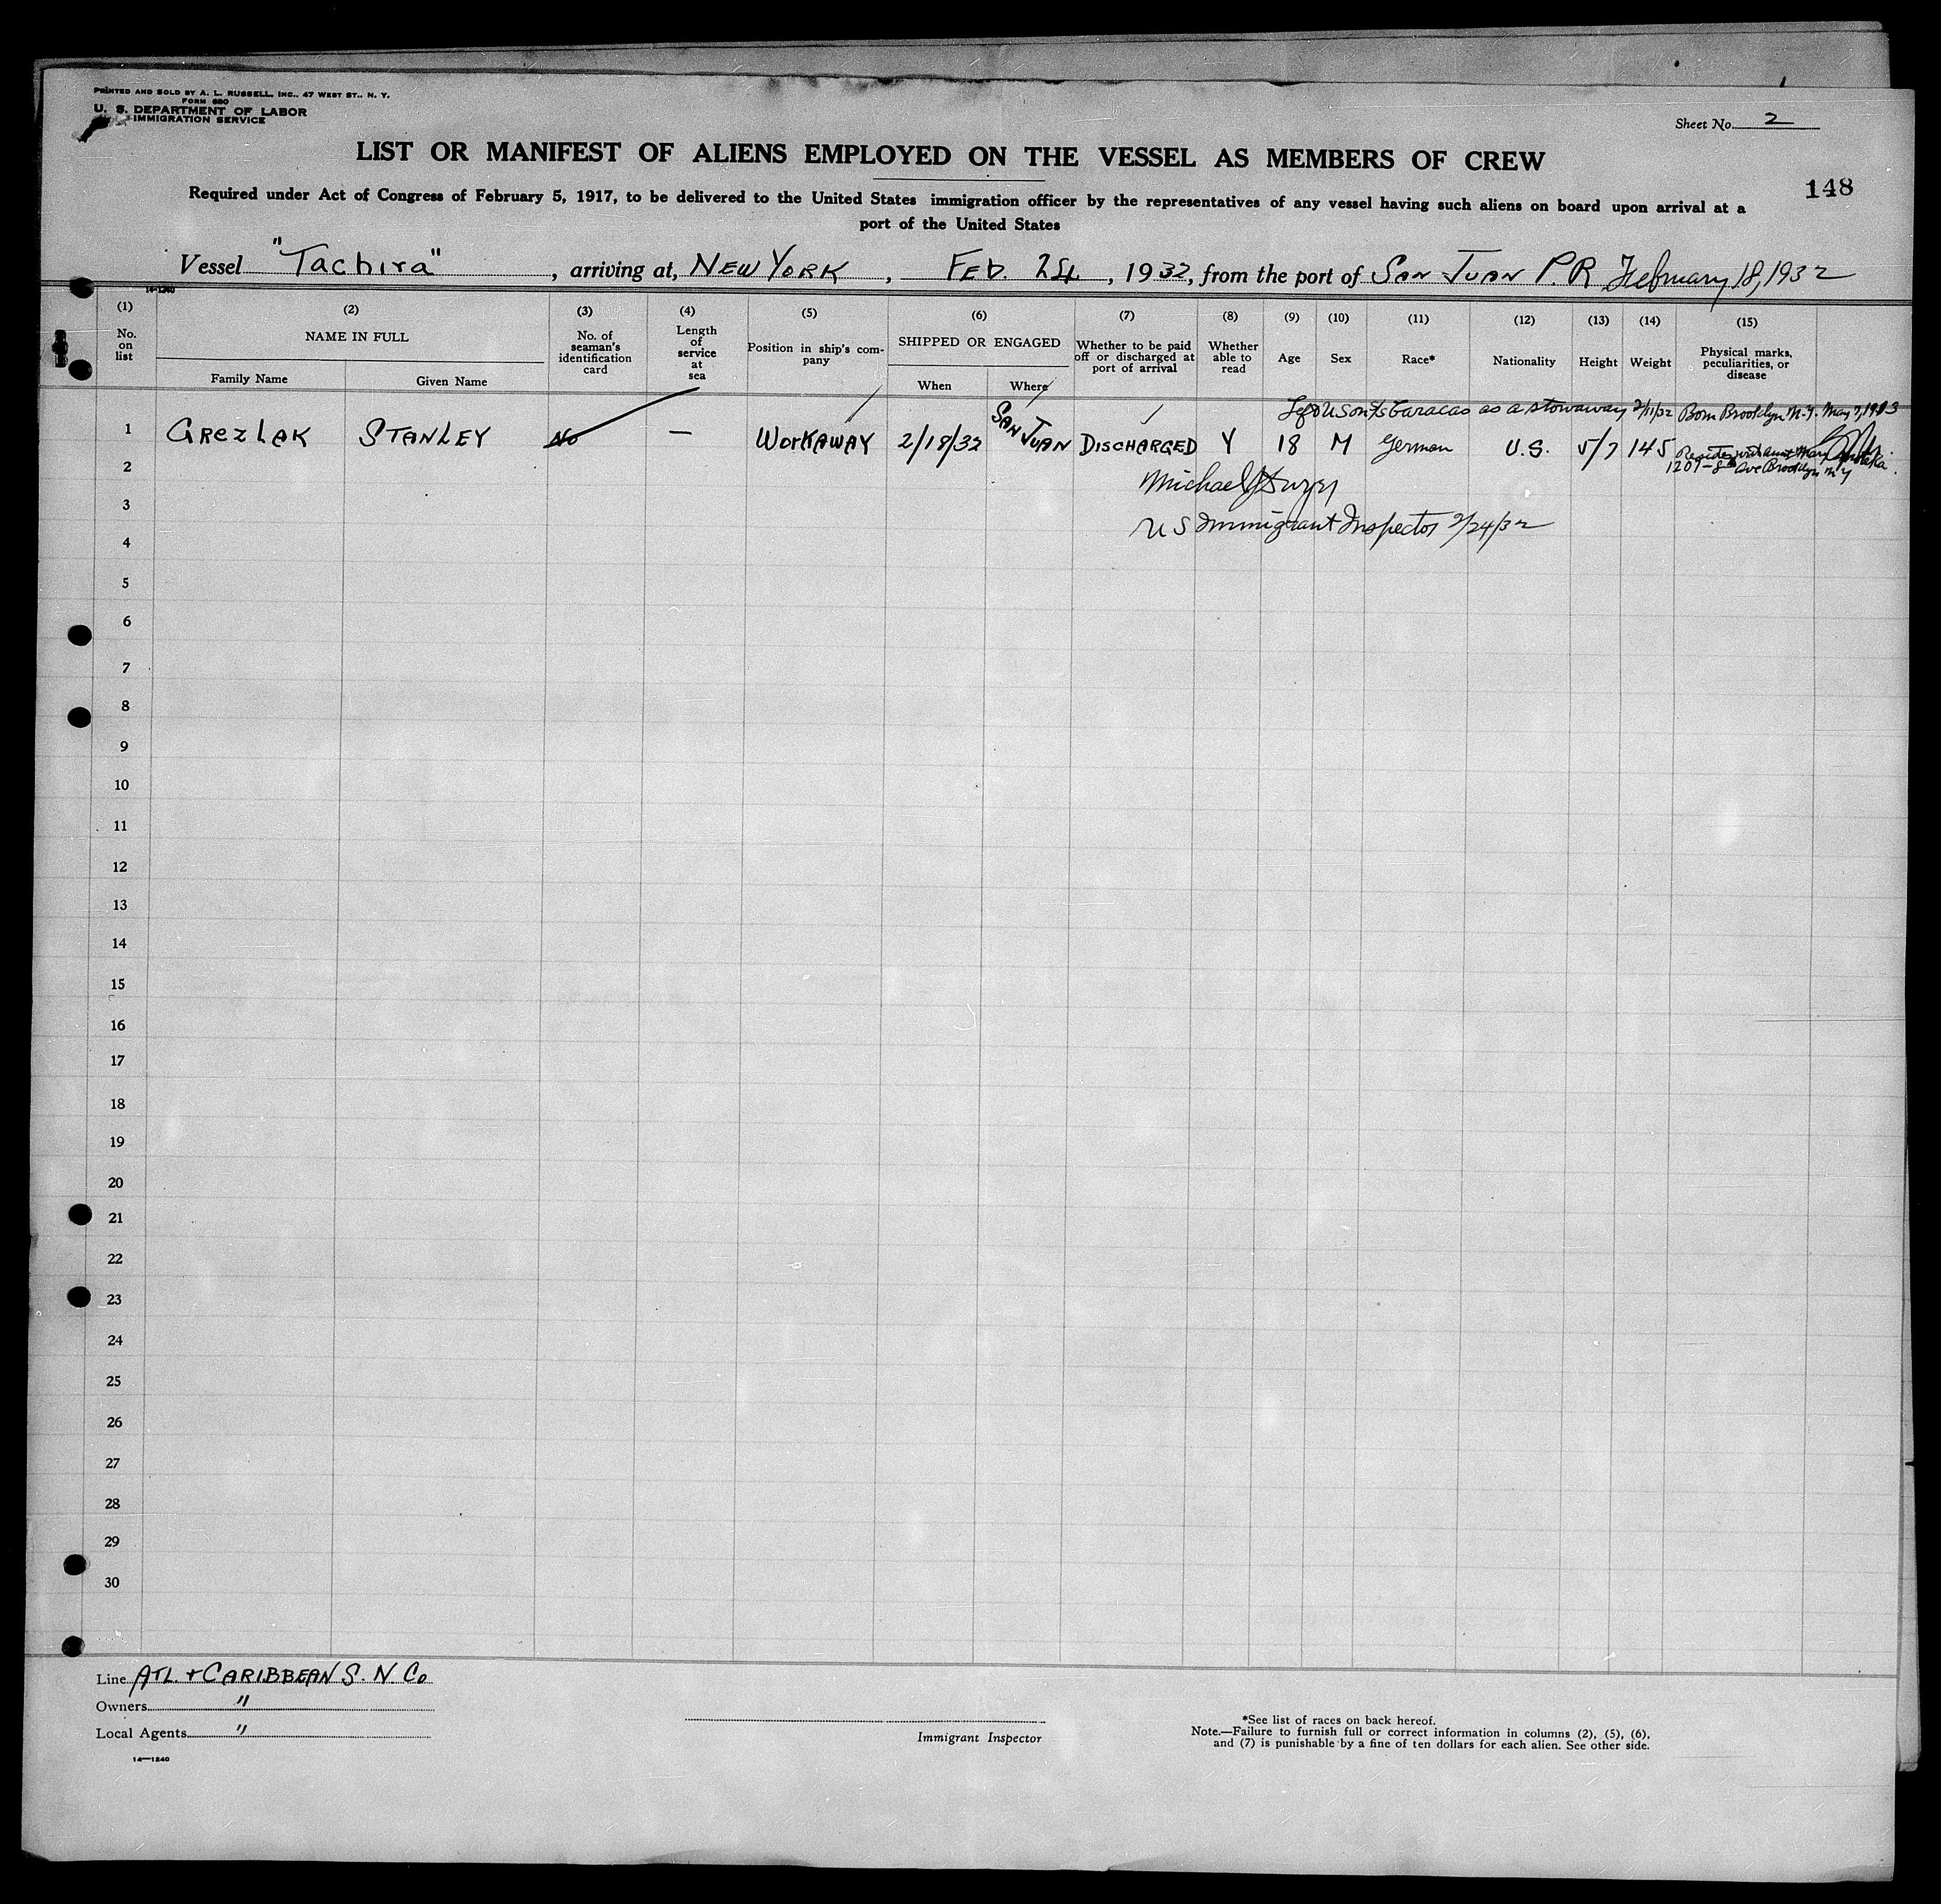 PRINTED AND SOLD BY A. L. RUSSELL, INC., 47 WEST ST., N. Y.
FORM 680
U. S. DEPARTMENT OF LABOR
IMMIGRATION SERVICE
Sheet No. 2
LIST OR MANIFEST OF ALIENS EMPLOYED ON THE VESSEL AS MEMBERS OF CREW
148
Required under Act of Congress of February 5, 1917, to be delivered to the United States immigration officer by the representatives of any vessel having such aliens on board upon arrival at a
port of the United States
Vessel "Tachira", arriving at, NEW YORK, FEB. 24, 1932, from the port of SAN JUAN P.R February 18, 1932
14-1240
(1) (2) (3) (4) (5) (6) (7) (8) (9) (10) (11) (12) (13) (14) (15)
No. on list
NAME IN FULL
Family Name
Given Name
No. of seaman's identification card
Length of service at sea
Position in ship's company
SHIPPED OR ENGAGED
When
Where
Whether to be paid off or discharged at port of arrival
Whether able to read
Age
Sex
Race*
Nationality
Height
Weight
Physical marks, peculiarities, or disease
Left U S on Ss Caracas as a stowaway 2/11/32 Born Brooklyn N.Y. May 7, 1913
1 GREZLAK STANLEY No — WORKAWAY 2/18/32 SAN JUAN DISCHARGED Y 18 M German U.S. 5/7 145
Resides with aunt Mary
1207-8th Ave Brooklyn N Y
2
Michael J Dwyer
3
US Immigrant Inspector 2/24/32
4
5
6
7
8
9
10
11
12
13
14
15
16
17
18
19
20
21
22
23
24
25
26
27
28
29
30
Line ATL. + CARIBBEAN S. N. Co
Owners "
Local Agents "
14—1240
Immigrant Inspector
*See list of races on back hereof.
Note.—Failure to furnish full or correct information in columns (2), (5), (6),
and (7) is punishable by a fine of ten dollars for each alien. See other side.